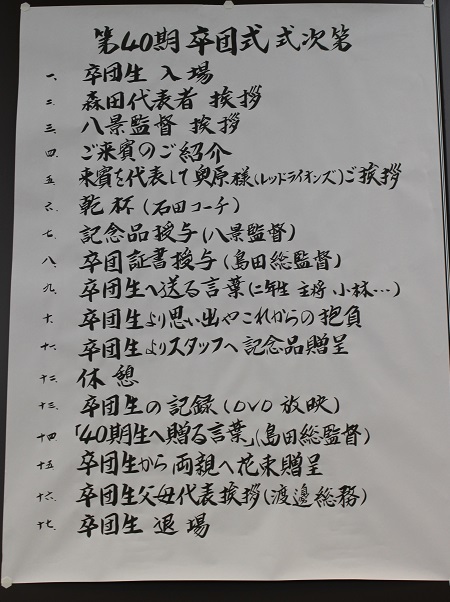 第40期 卒団式 式次第
一、 卒団生 入場
二、 森田代表者 挨拶
三、 八景監督 挨拶
四、 ご来賓のご紹介
五、 来賓を代表して奥原様(レッドライオンズ)ご挨拶
六、 乾杯(石田コーチ)
七、 記念品授与(八景監督)
八、 卒団証書授与(島田総監督)
九、 卒団生へ送る言葉(二年生 主将 小林…)
十、 卒団生より思い出やこれからの抱負
十一、 卒団生よりスタッフへ記念品贈呈
十二、 休憩
十三、 卒団生の記録(DVD放映)
十四、 「40期生へ贈る言葉」(島田総監督)
十五、 卒団生から両親へ花束贈呈
十六、 卒団生父母代表挨拶(渡邊総務)
十七、 卒団生 退場